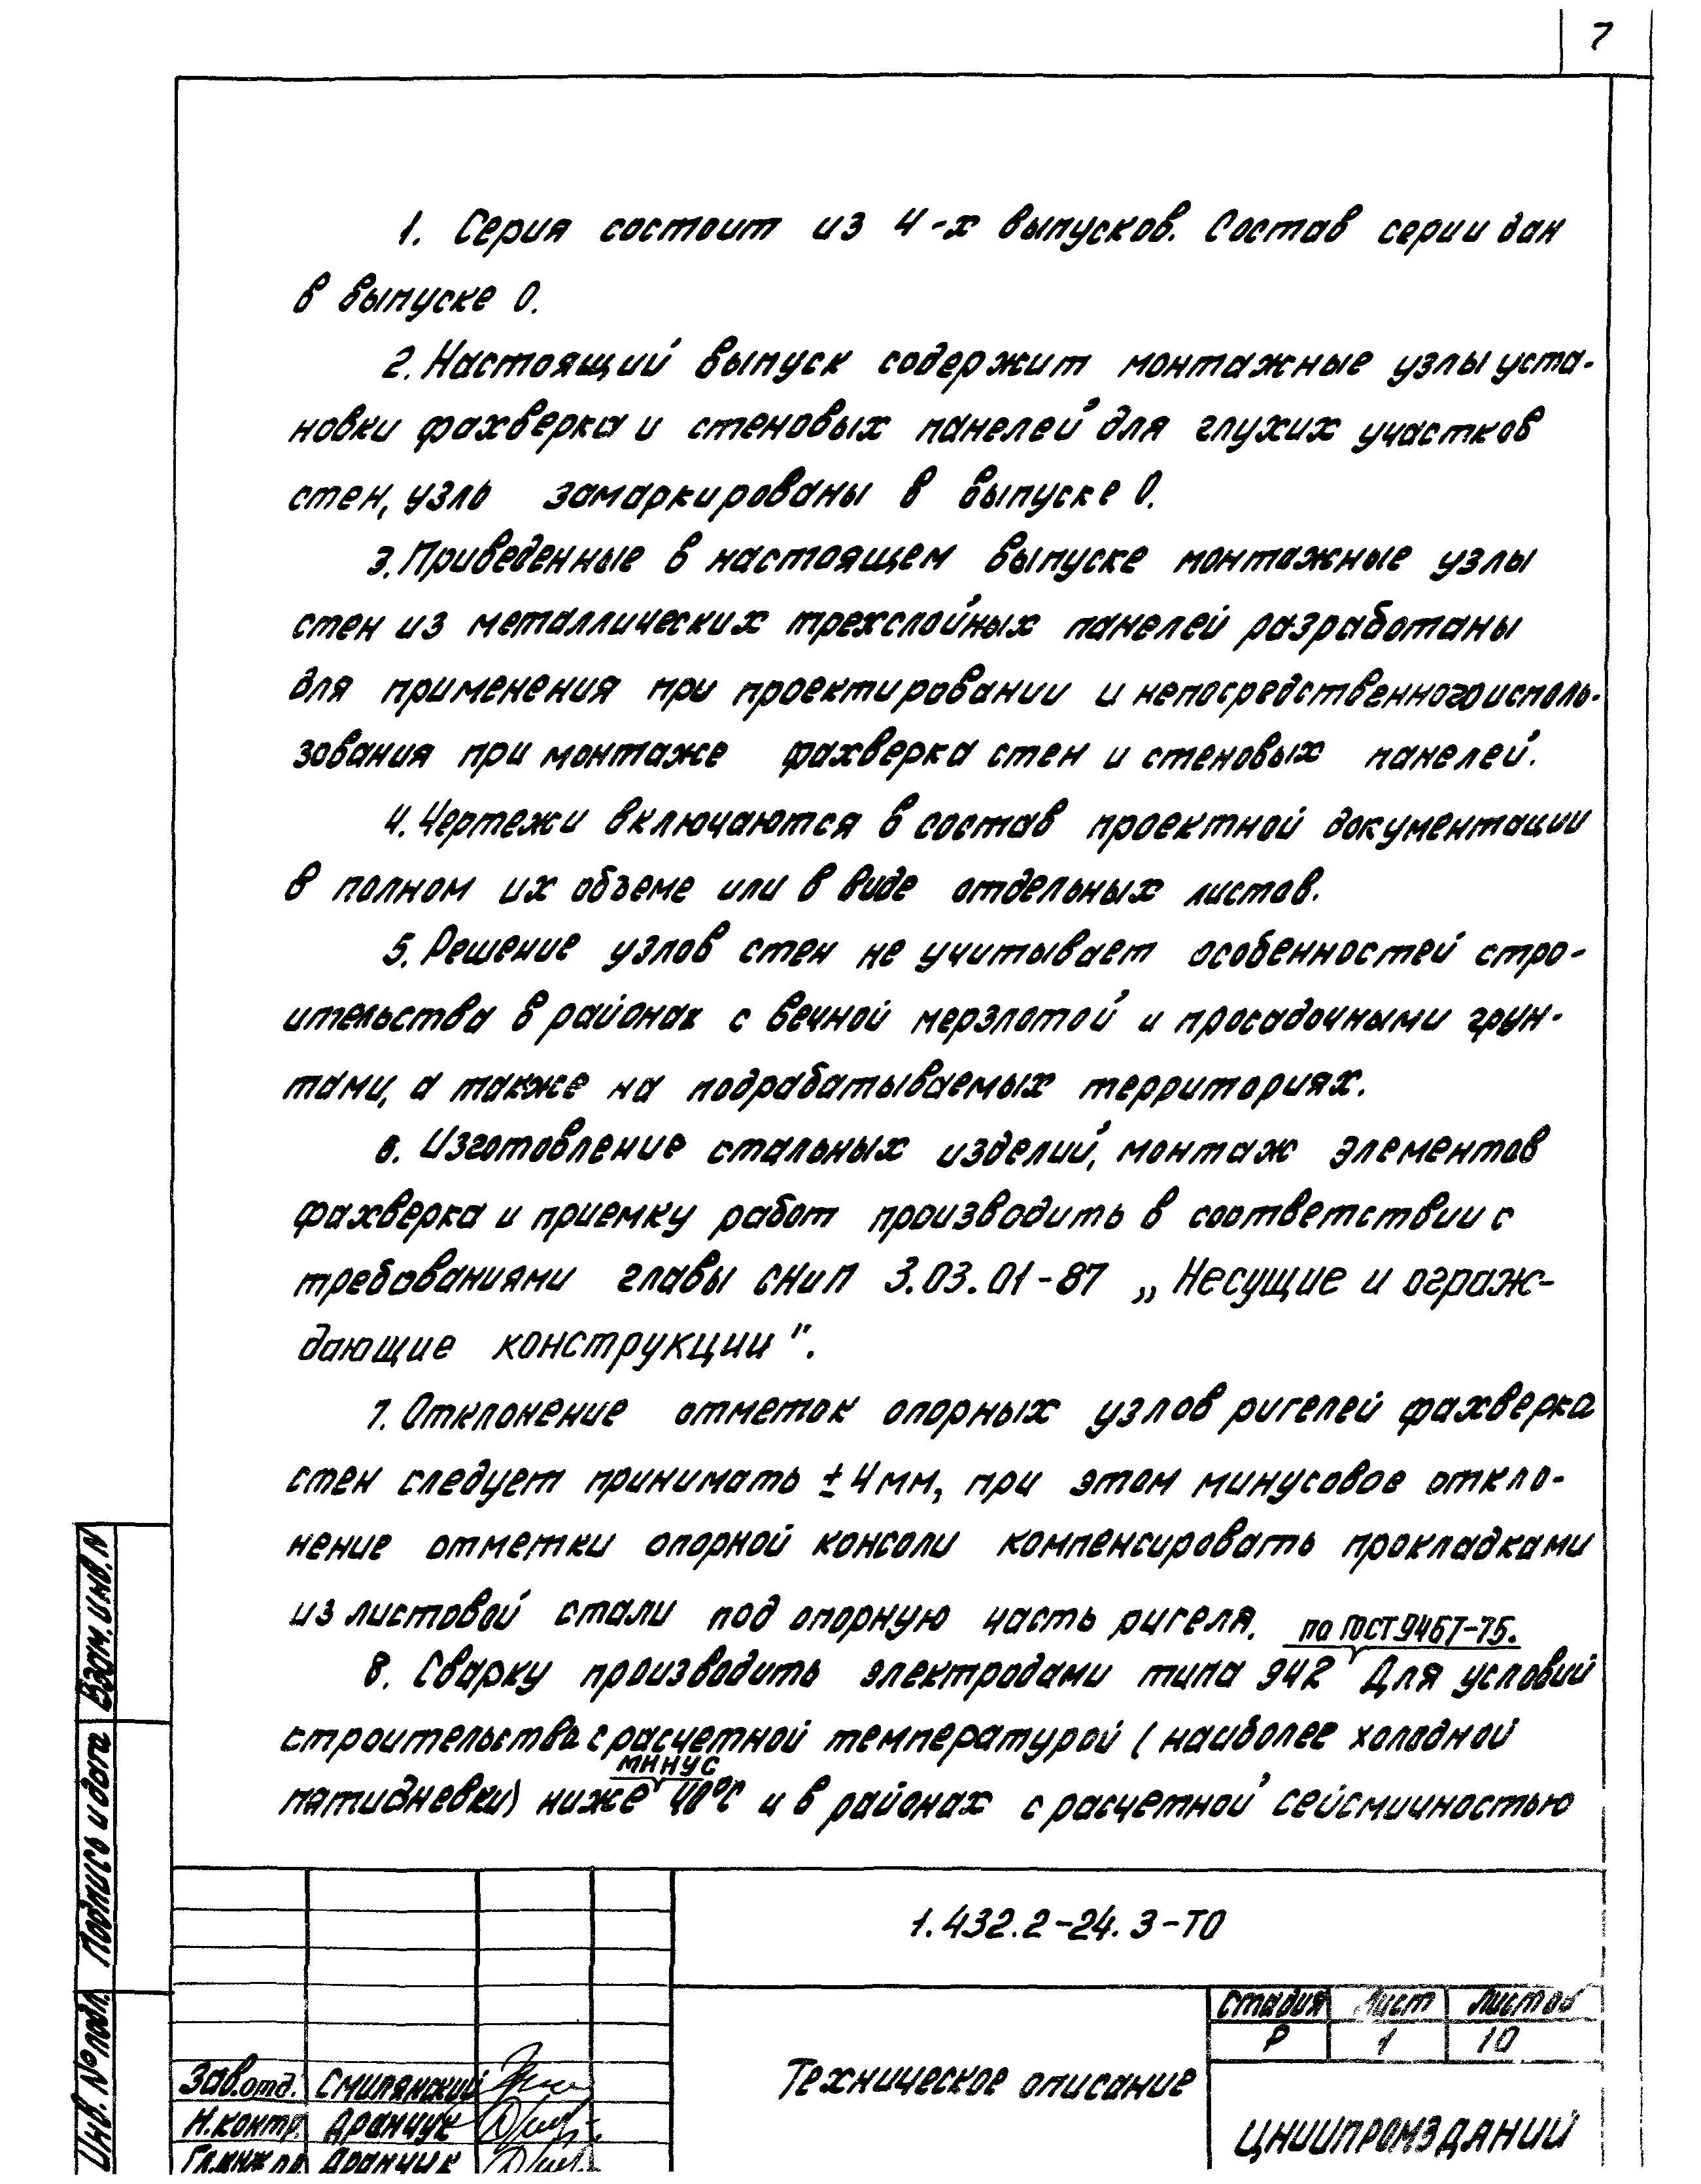 7
1. Серия состоит из 4-х выпусков. Состав серии дан
в выпуске 0.
2. Настоящий выпуск содержит монтажные узлы уста-
новки фахверка и стеновых панелей для глухих участков
стен, узлы замаркированы в выпуске 0.
3. Приведенные в настоящем выпуске монтажные узлы
стен из металлических трехслойных панелей разработаны
для применения при проектировании и непосредственного исполь-
зования при монтаже фахверка стен и стеновых панелей.
4. Чертежи включаются в состав проектной документации
в полном их объеме или в виде отдельных листов.
5. Решение узлов стен не учитывает особенностей стро-
ительства в районах с вечной мерзлотой и просадочными грун-
тами, а также на подрабатываемых территориях.
6. Изготовление стальных изделий, монтаж элементов
фахверка и приемку работ производить в соответствии с
требованиями главы СНиП 3.03.01-87 „Несущие и ограж-
дающие конструкции".
7. Отклонение отметок опорных узлов ригелей фахверка
стен следует принимать ±4мм, при этом минусовое откло-
нение отметки опорной консоли компенсировать прокладками
из листовой стали под опорную часть ригеля.
по ГОСТ 9467-75.
8. Сварку производить электродами типа Э42 Для условий
строительства с расчетной температурой (наиболее холодной
минус
пятидневки) ниже 40°С и в районах с расчетной сейсмичностью
Взам. инв. N
Подпись и дата
Инв. № подл.
1.432.2-24.3-ТО
Зав. отд. Смилянский
Н. контр. Дранчук
Гл. инж пр Дранчук
Техническое описание
Стадия Лист Листов
Р 1 10
ЦНИИПРОМЗДАНИЙ